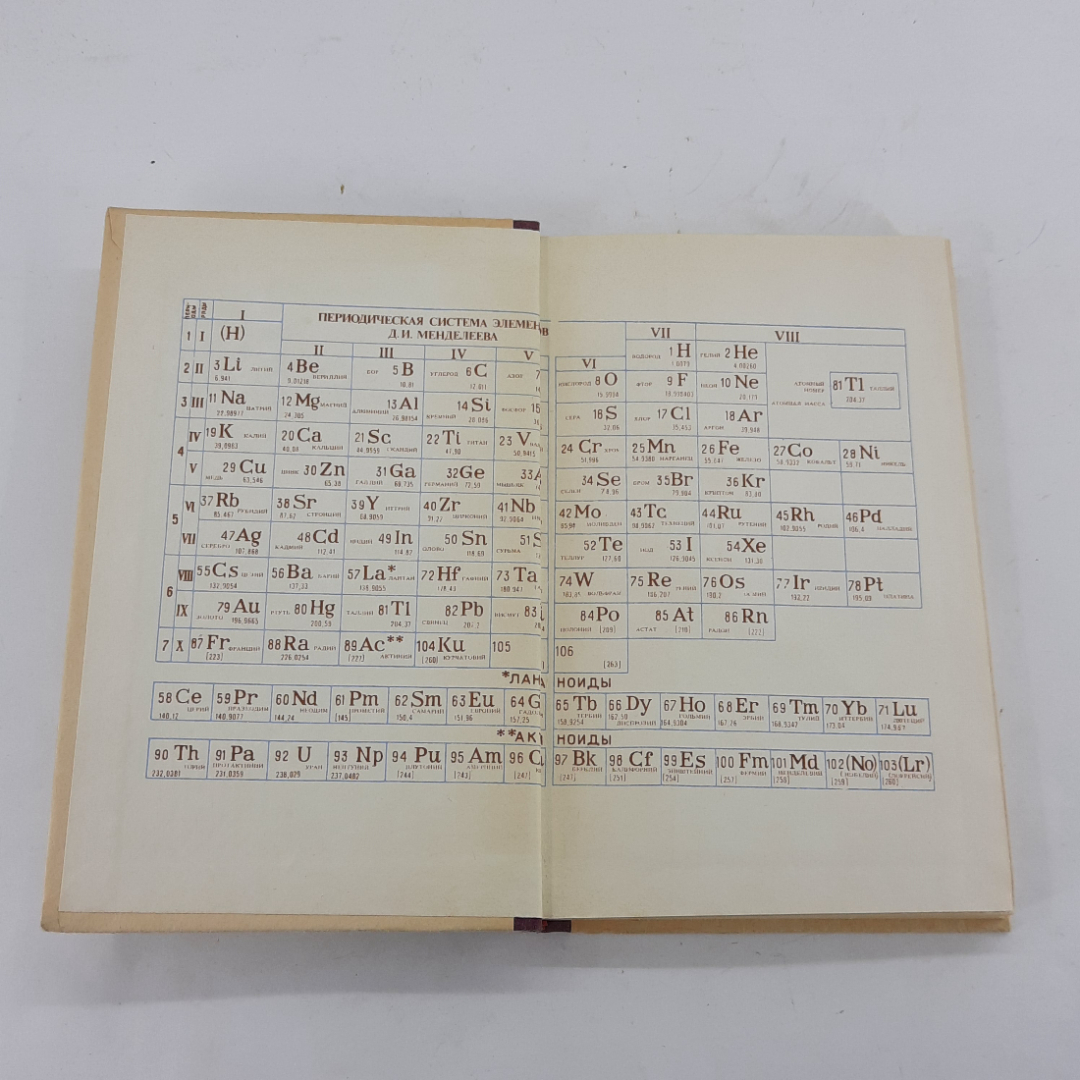 ПЕРИОДИЧЕСКАЯ СИСТЕМА ЭЛЕМЕНТОВ
Д. И. МЕНДЕЛЕЕВА
I II III IV V VI VII VIII
1 I (H) ВОДОРОД 1 H ГЕЛИЙ 2 He
2 II 3 Li ЛИТИЙ 4 Be БЕРИЛЛИЙ БОР 5 B УГЛЕРОД 6 C АЗОТ 7 КИСЛОРОД 8 O ФТОР 9 F НЕОН 10 Ne
6,941 9,01218 10,81
АТОМНЫЙ НОМЕР 81 Tl ТАЛЛИЙ
АТОМНАЯ МАССА 204,37
3 III 11 Na НАТРИЙ 12 Mg МАГНИЙ 13 Al АЛЮМИНИЙ 14 Si КРЕМНИЙ ФОСФОР 15 СЕРА 16 S ХЛОР 17 Cl 18 Ar АРГОН
24,305 26,98154 32,06 35,453 39,948
4 IV 19 K КАЛИЙ 20 Ca КАЛЬЦИЙ 21 Sc СКАНДИЙ 22 Ti ТИТАН 23 V 24 Cr ХРОМ 25 Mn МАРГАНЕЦ 26 Fe ЖЕЛЕЗО 27 Co КОБАЛЬТ 28 Ni НИКЕЛЬ
40,08 44,9559 47,90 50,9415 51,996 54,9380 58,9332 58,71
V 29 Cu МЕДЬ ЦИНК 30 Zn 31 Ga ГАЛЛИЙ 32 Ge ГЕРМАНИЙ 33 МЫШЬЯК 34 Se СЕЛЕН БРОМ 35 Br 36 Kr КРИПТОН
63,546 65,38 72,59 78,96 79,904 83,80
5 VI 37 Rb РУБИДИЙ 38 Sr СТРОНЦИЙ 39 Y ИТТРИЙ 40 Zr ЦИРКОНИЙ 41 Nb 42 Mo МОЛИБДЕН 43 Tc ТЕХНЕЦИЙ 44 Ru РУТЕНИЙ 45 Rh РОДИЙ 46 Pd ПАЛЛАДИЙ
85,467 87,62 88,9059 91,22 92,9064 98,9062 101,07 102,9055 106,4
VII 47 Ag СЕРЕБРО 48 Cd КАДМИЙ ИНДИЙ 49 In 50 Sn ОЛОВО 51 S СУРЬМА 52 Te ТЕЛЛУР ИОД 53 I 54 Xe КСЕНОН
107,868 112,41 114,82 118,69 127,60 126,9045 131,30
6 VIII 55 Cs ЦЕЗИЙ 56 Ba БАРИЙ 57 La* ЛАНТАН 72 Hf ГАФНИЙ 73 Ta 74 W ВОЛЬФРАМ 75 Re РЕНИЙ 76 Os ОСМИЙ 77 Ir ИРИДИЙ 78 Pt ПЛАТИНА
132,9054 137,33 178,49 186,207 190,2 192,22 195,09
IX 79 Au ЗОЛОТО РТУТЬ 80 Hg ТАЛЛИЙ 81 Tl 82 Pb СВИНЕЦ ВИСМУТ 83 84 Po ПОЛОНИЙ 85 At АСТАТ 86 Rn РАДОН
196,9665 200,59 204,37 207,2 [209] [210] [222]
7 X 87 Fr ФРАНЦИЙ 88 Ra РАДИЙ 89 Ac** АКТИНИЙ 104 Ku КУРЧАТОВИЙ 105 106
[223] 226,0254 [227] [260] [263]
*ЛАНТАНОИДЫ
58 Ce 59 Pr 60 Nd 61 Pm 62 Sm 63 Eu 64 G 65 Tb 66 Dy 67 Ho 68 Er 69 Tm 70 Yb 71 Lu
ЦЕРИЙ ПРАЗЕОДИМ НЕОДИМ ПРОМЕТИЙ САМАРИЙ ЕВРОПИЙ ТЕРБИЙ ДИСПРОЗИЙ ГОЛЬМИЙ ЭРБИЙ ТУЛИЙ ИТТЕРБИЙ ЛЮТЕЦИЙ
140,12 140,9077 144,24 [145] 150,4 151,96 157,25 158,9254 162,50 164,9304 167,26 168,9342 173,04 174,967
**АКТИНОИДЫ
90 Th 91 Pa 92 U 93 Np 94 Pu 95 Am 96 C 97 Bk 98 Cf 99 Es 100 Fm 101 Md 102 (No) 103 (Lr)
ТОРИЙ ПРОТАКТИНИЙ УРАН НЕПТУНИЙ ПЛУТОНИЙ АМЕРИЦИЙ БЕРКЛИЙ КАЛИФОРНИЙ ЭЙНШТЕЙНИЙ ФЕРМИЙ МЕНДЕЛЕВИЙ (НОБЕЛИЙ) (ЛОУРЕНСИЙ)
232,0381 231,0359 238,029 237,0482 [244] [243] [247] [247] [251] [254] [257] [258] [259] [260]